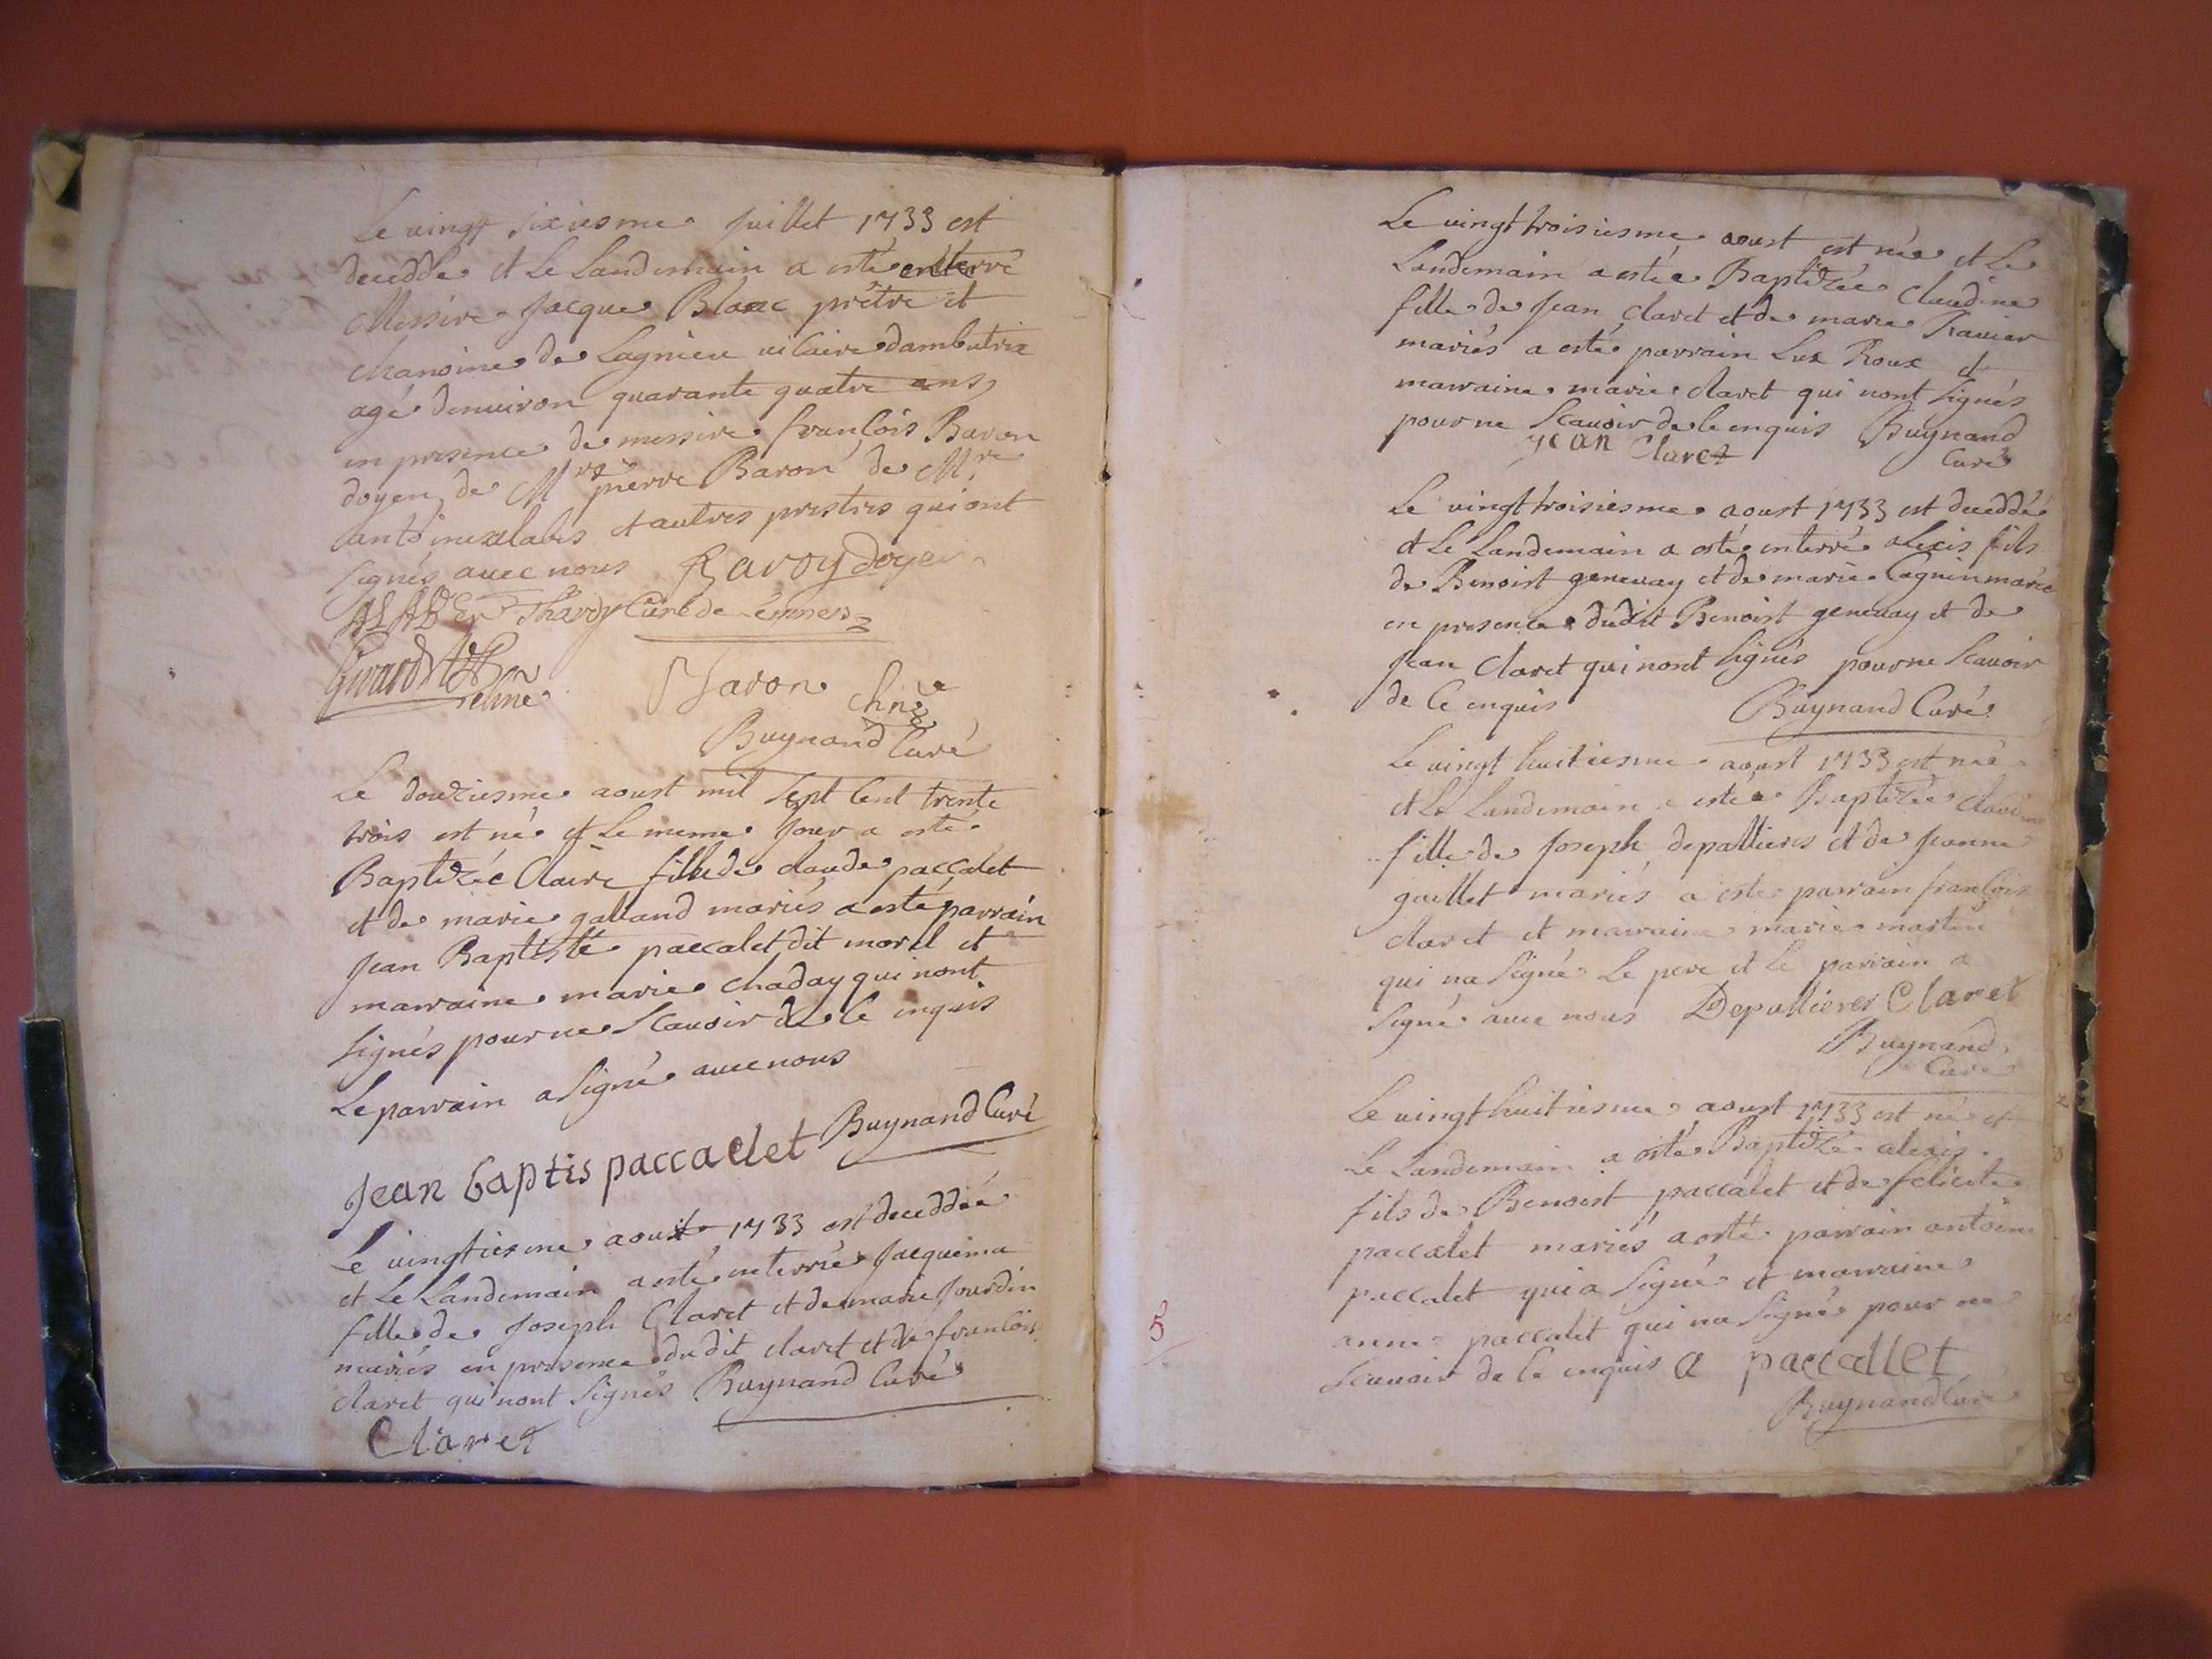 Le vingt sixiesme Juillet 1733 est
decedde et Le Landemain a esté enterré
Messire Jacque Blanc prêtre et
chanoine de Lagnieu vicaire dambutrix
agé denuiron quarante quatre ans,
en presence de messire françois Baron
doyen, de Mre pierre Baron de Mre
et autres prestres qui ont
signés auec nous Baron doyen
Thardy Curé de
Girard
Baron Chne
Buynand Curé
Le douziesme aoust mil Sept Cent trente
trois est né et Le meme Jour a esté
Baptizée Claire fille de claude paccalet
et de marie galland mariés a esté parrain
Jean Baptiste paccalet dit morel et
marraine marie chaday qui nont
signés pour ne Scauoir de Ce enquis
Le parrain a signé auec nous
Buynand Curé
Jean baptis paccaclet
Le vingtiesme aoust 1733 est deceddée
et Le Landemain a esté enterrée Jacquema
fille de Joseph Claret et de marie Jourdin
mariés en presence dudit claret et de francois
claret qui nont signés Buynand Curé
Claret
Le vingt troisiesme aoust est née et Le
Landemain a estée Baptizée Claudine
fille de Jean claret et de marie Rauier
mariés a esté parrain Luc Roux et
marraine marie claret qui nont signés
pour ne Scauoir de Ce enquis Buynand
Jean Claret Curé
Le vingt troisiesme aoust 1733 est deceddé
et Le Landemain a esté enterré alexis fils
de Benoist geneuay et de marie Cagnin mariés
en presence dudit Benoist geneuay et de
Jean Claret qui nont signés pour ne Scauoir
de Ce enquis Buynand Curé
Le vingt huitiesme aoust 1733 est née
et Le Landemain a estée Baptizée claudine
fille de Joseph depallieres et de Jeanne
guillet mariés a esté parrain francois
claret et marraine marie martin
qui na signé Le pere et le parrain a
signé auec nous Depallieres Claret
Buynand
Curé
Le vingt huitiesme aoust 1733 est né et
Le Landemain a esté Baptizé alexis
fils de Benoist paccalet et de felicite
paccalet mariés a esté parrain antoine
paccalet qui a signé et marraine
anne paccalet qui na signé pour ne
Scauoir de Ce enquis a paccallet
Buynand Curé
5